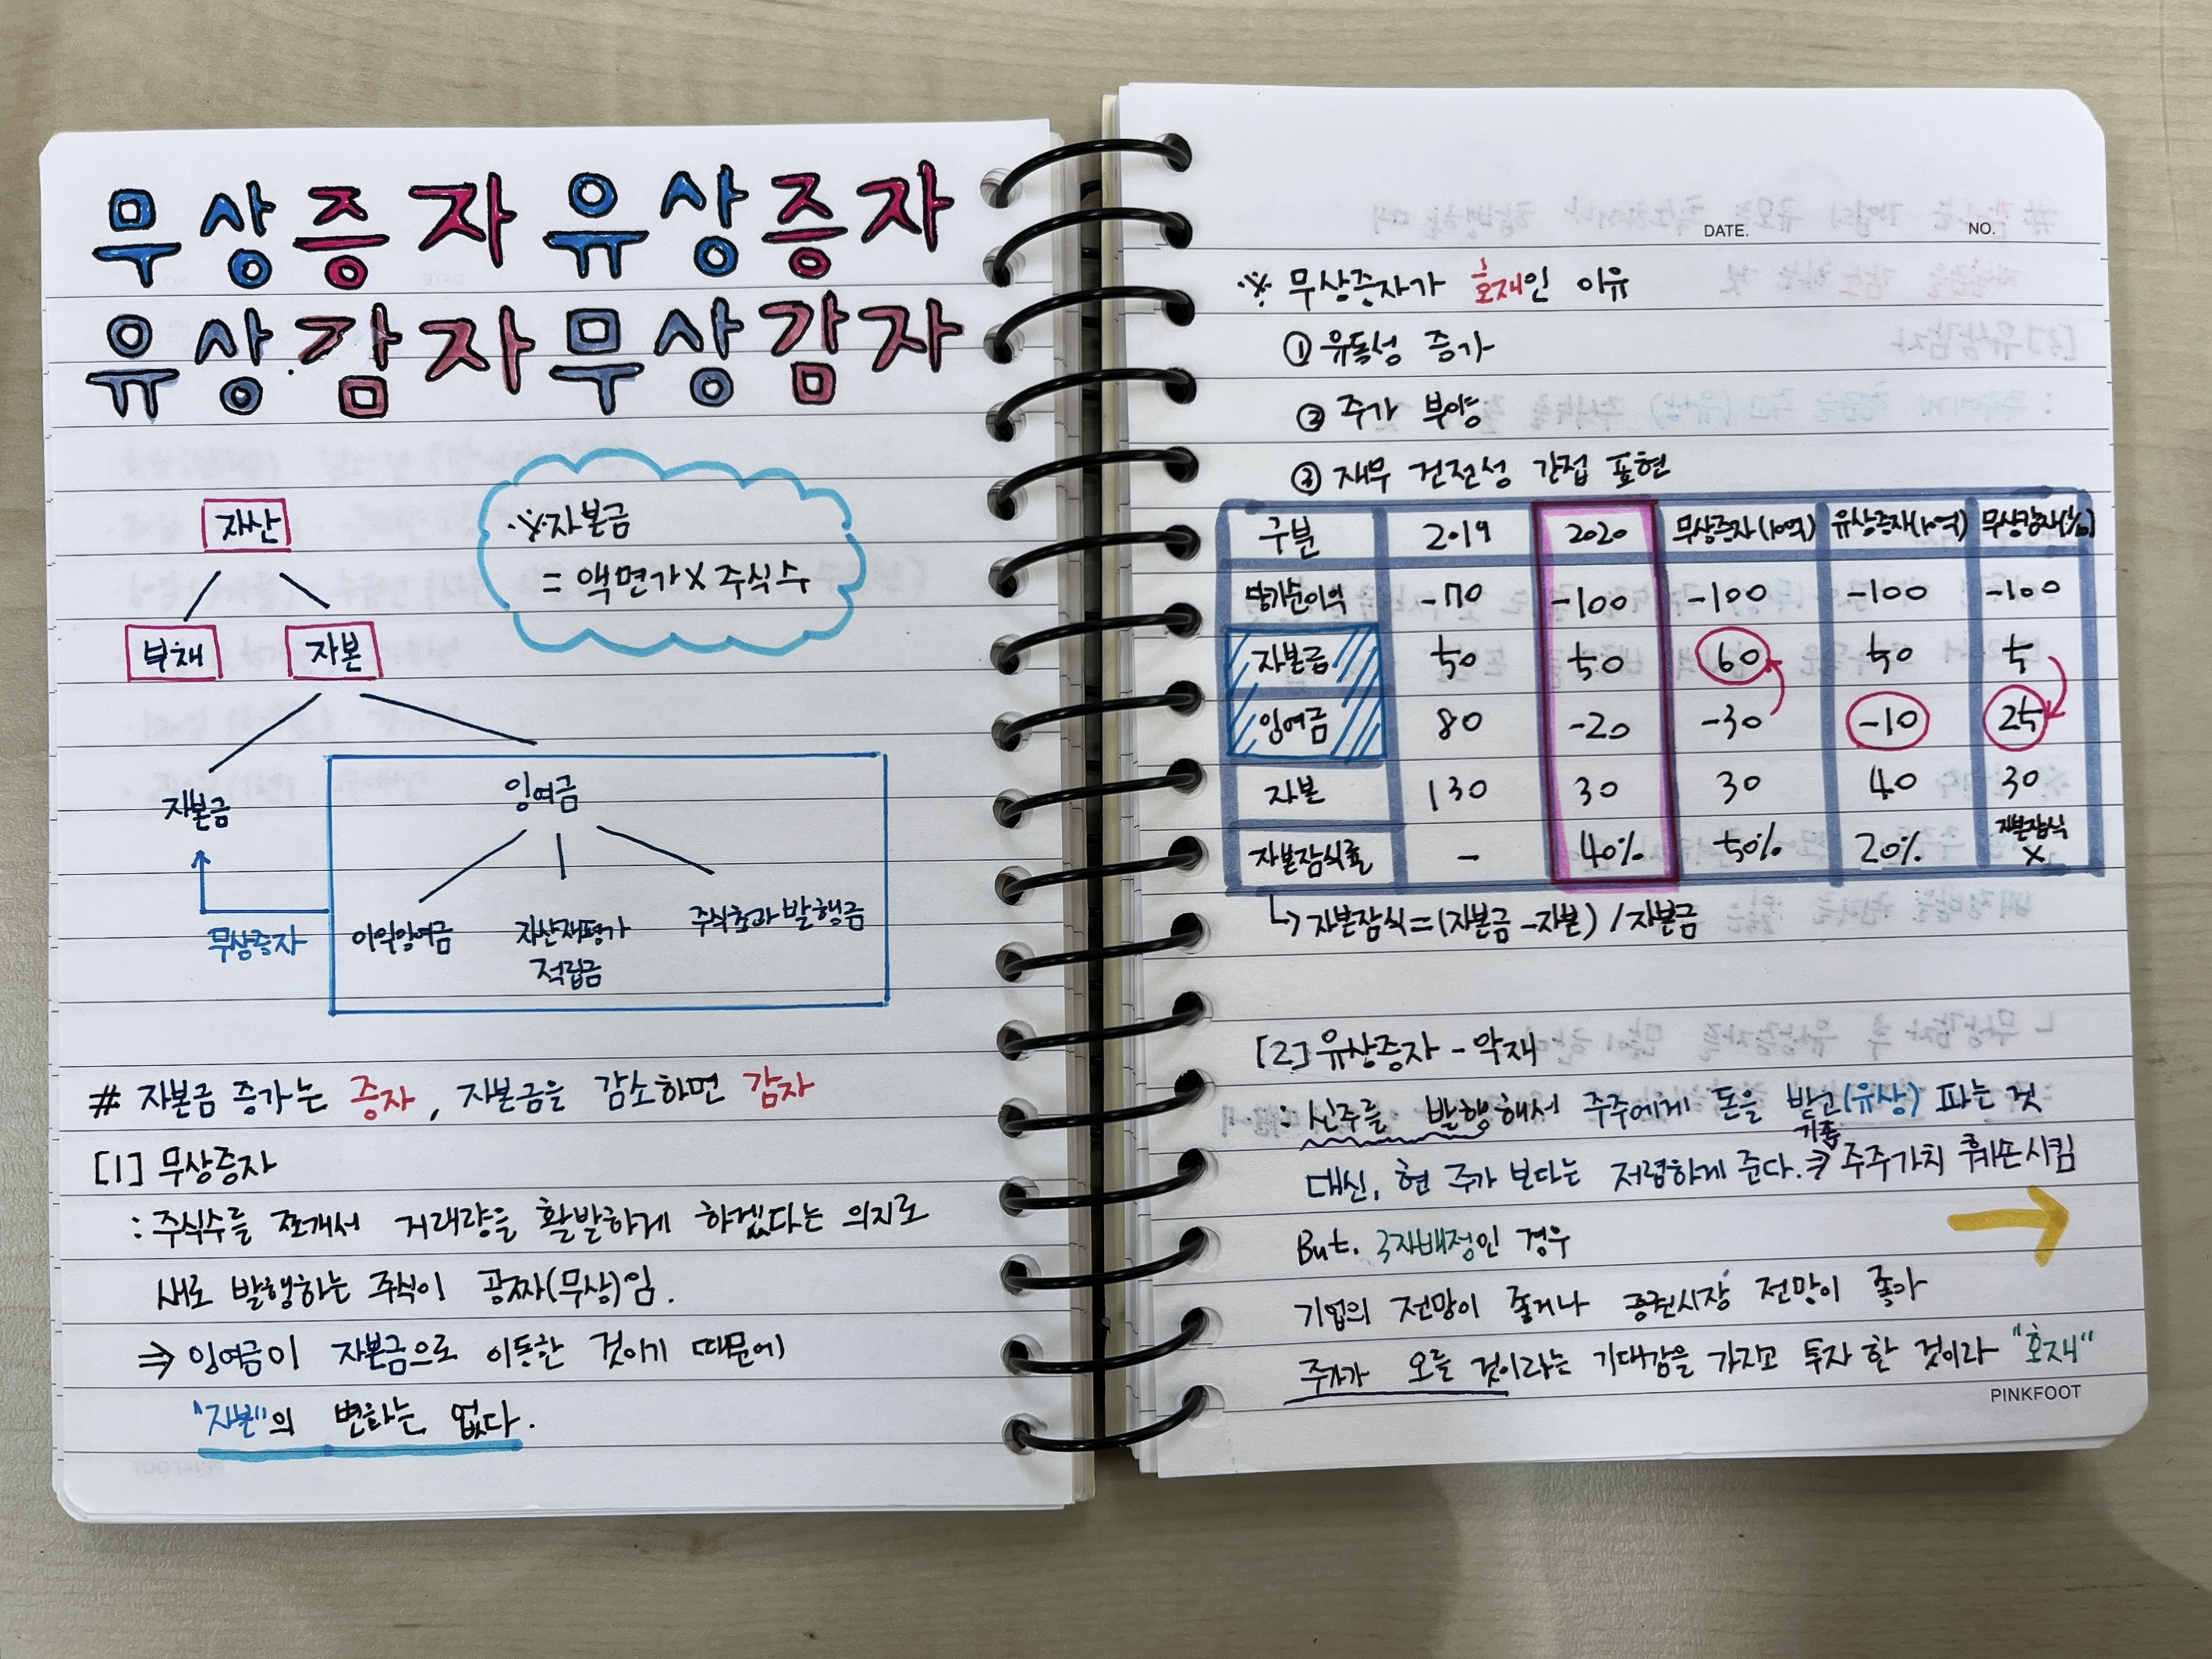 무상증자 유상증자
유상감자 무상감자
자산
※자본금
= 액면가 x 주식수
부채 자본
자본금 잉여금
무상증자 이익잉여금 자산재평가 적립금 주식초과발행금
# 자본금 증가는 증자, 자본금을 감소하면 감자
[1] 무상증자
: 주식수를 쪼개서 거래량을 활발하게 하겠다는 의지로
새로 발행하는 주식이 공짜(무상)임.
⇒ 잉여금이 자본금으로 이동한 것이기 때문에
"자본"의 변화는 없다.
DATE. NO.
※ 무상증자가 호재인 이유
① 유동성 증가
② 주가 부양
③ 재무 건전성 간접 표현
구분 2019 2020 무상증자(10억) 유상증자(10억) 무상감자(1/10)
당기순이익 -70 -100 -100 -100 -100
자본금 50 50 60 50 5
잉여금 80 -20 -30 -10 25
자본 130 30 30 40 30
자본잠식률 - 40% 50% 20% 자본잠식 X
↳ 자본잠식=(자본금-자본)/자본금
[2] 유상증자 - 악재
: 신주를 발행해서 주주에게 돈을 받고(유상) 파는 것
대신, 현 주가 보다는 저렴하게 준다. → 기존 주주가치 훼손시킴
But. 3자배정인 경우
기업의 전망이 좋거나 증권시장 전망이 좋아
주가가 오를 것이라는 기대감을 가지고 투자 한 것이라 "호재"
PINKFOOT